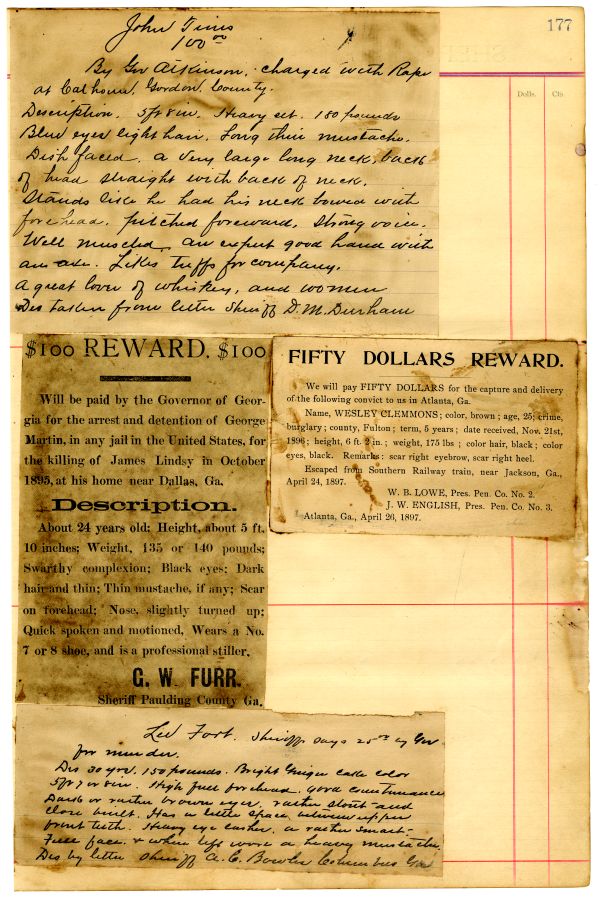 177
Dolls. Cts.
John Tims
100 00
By Gov Atkinson, charged with Rape
at Calhoun, Gordon County.
Description. 5ft 8in. Heavy set. 180 pounds
Blue eyes light hair. Long thin mustache.
Dish faced. a very large long neck, back
of head straight with back of neck.
Stands like he had his neck bowed with
forehead pitched foreward, strong voice.
Well muscled, an expert good hand with
an axe. Likes tuffs for company.
a great lover of whiskey, and women
Des taken from letter Sheriff D. M. Durham
$100 REWARD. $100
Will be paid by the Governor of Geor-
gia for the arrest and detention of George
Martin, in any jail in the United States, for
the killing of James Lindsy in October
1895, at his home near Dallas, Ga.
Description.
About 24 years old; Height, about 5 ft.
10 inches; Weight, 135 or 140 pounds;
Swarthy complexion; Black eyes; Dark
hair and thin; Thin mustache, if any; Scar
on forehead; Nose, slightly turned up;
Quick spoken and motioned, Wears a No.
7 or 8 shoe, and is a professional stiller.
G. W FURR.
Sheriff Paulding County Ga.
FIFTY DOLLARS REWARD.
We will pay FIFTY DOLLARS for the capture and delivery
of the following convict to us in Atlanta, Ga.
Name, WESLEY CLEMMONS; color, brown; age, 25; crime,
burglary; county, Fulton; term, 5 years; date received, Nov. 21st,
1896; height, 6 ft. 2 in.; weight, 175 lbs; color hair, black; color
eyes, black. Remarks: scar right eyebrow, scar right heel.
Escaped from Southern Railway train, near Jackson, Ga.,
April 24, 1897.
W. B. LOWE, Pres. Pen. Co. No. 2.
J. W. ENGLISH, Pres. Pen. Co. No. 3.
Atlanta, Ga., April 26, 1897.
Fort. Sheriff says 25 by Gov
for murder.
Des 30 yrs. 150 pounds. Bright Ginger cake color
5ft 7 or 8in. High full forehead. good countenance
Dark or rather brown eyes, rather stout and
close built. Has a little space between upper
front teeth. Heavy eye lashes, a rather smart
Full face. & when left wore a heavy mustache.
Des by letter Sheriff A. C. Bowler Columbus Ga